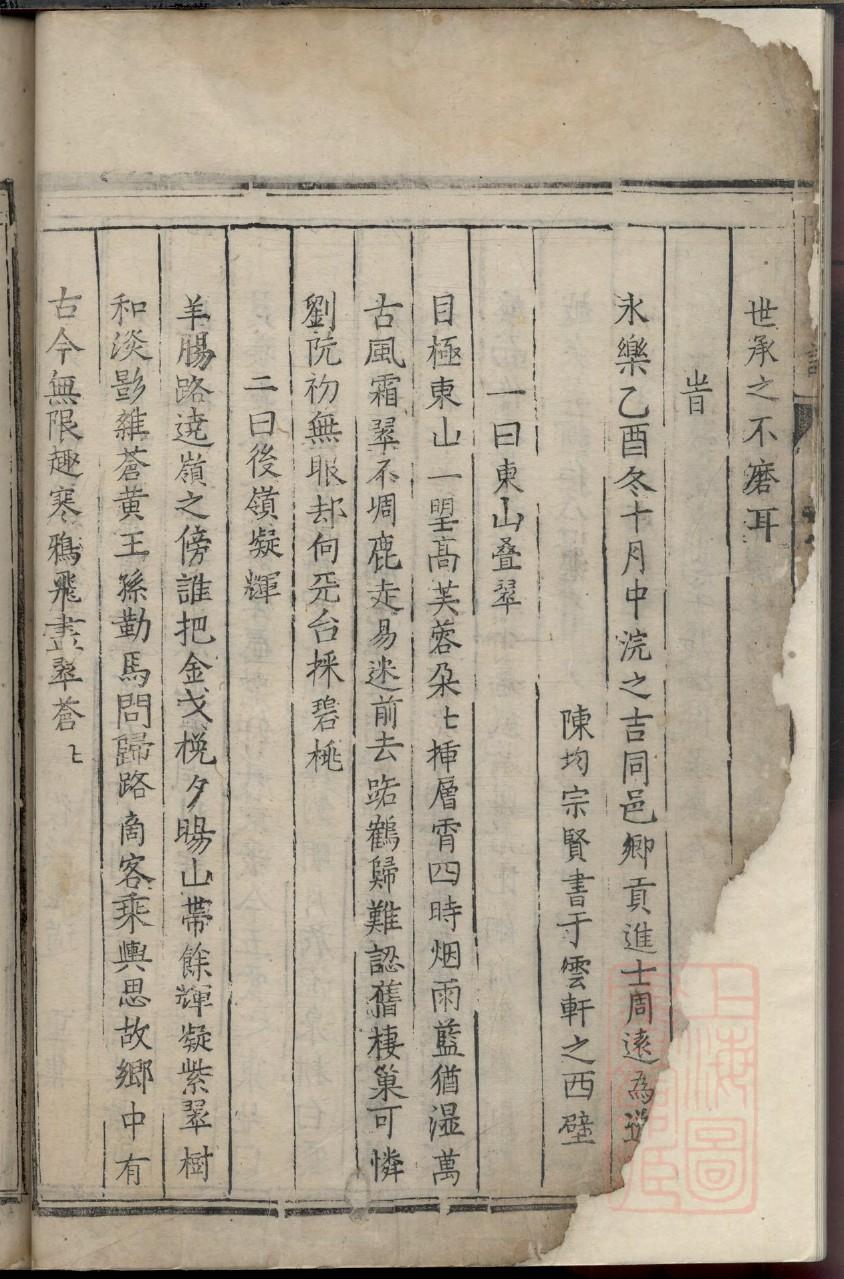 世承之不磨耳
旹
永樂乙酉冬十月中浣之吉同邑鄉貢進士周遠為
陳均宗賢書于雲軒之西壁
一曰東山叠翠
目極東山一望高芙蓉朵〻揷層霄四時烟雨藍猶湿萬
古風霜翠不凋鹿走易迷前去路鶴歸難認舊棲巢可憐
劉阮初無眼却向天台採碧桃
二曰後嶺凝輝
羊腸路遶嶺之傍誰把金戈挽夕暘山帶餘輝凝紫翠樹
和淡影雜蒼黄王孫勒馬問歸路商客乘興思故鄉中有
古今無限趣寒鴉飛盡翠蒼〻
上海圖